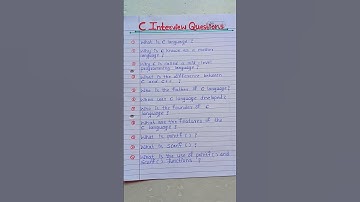 C Interview Questions
What is C language ?
Why C known as a mother
language ?
Why C is called a mid-level
programming language ?
What is the difference between
C and C++ ?
Who is the father of C language ?
When was C language developed ?
Who is the founder of C
language ?
What are the features of the
C language ?
What is printf ( ) ?
What is scanf ( ) ?
What is the use of printf ( ) and
scanf ( ) functions ?